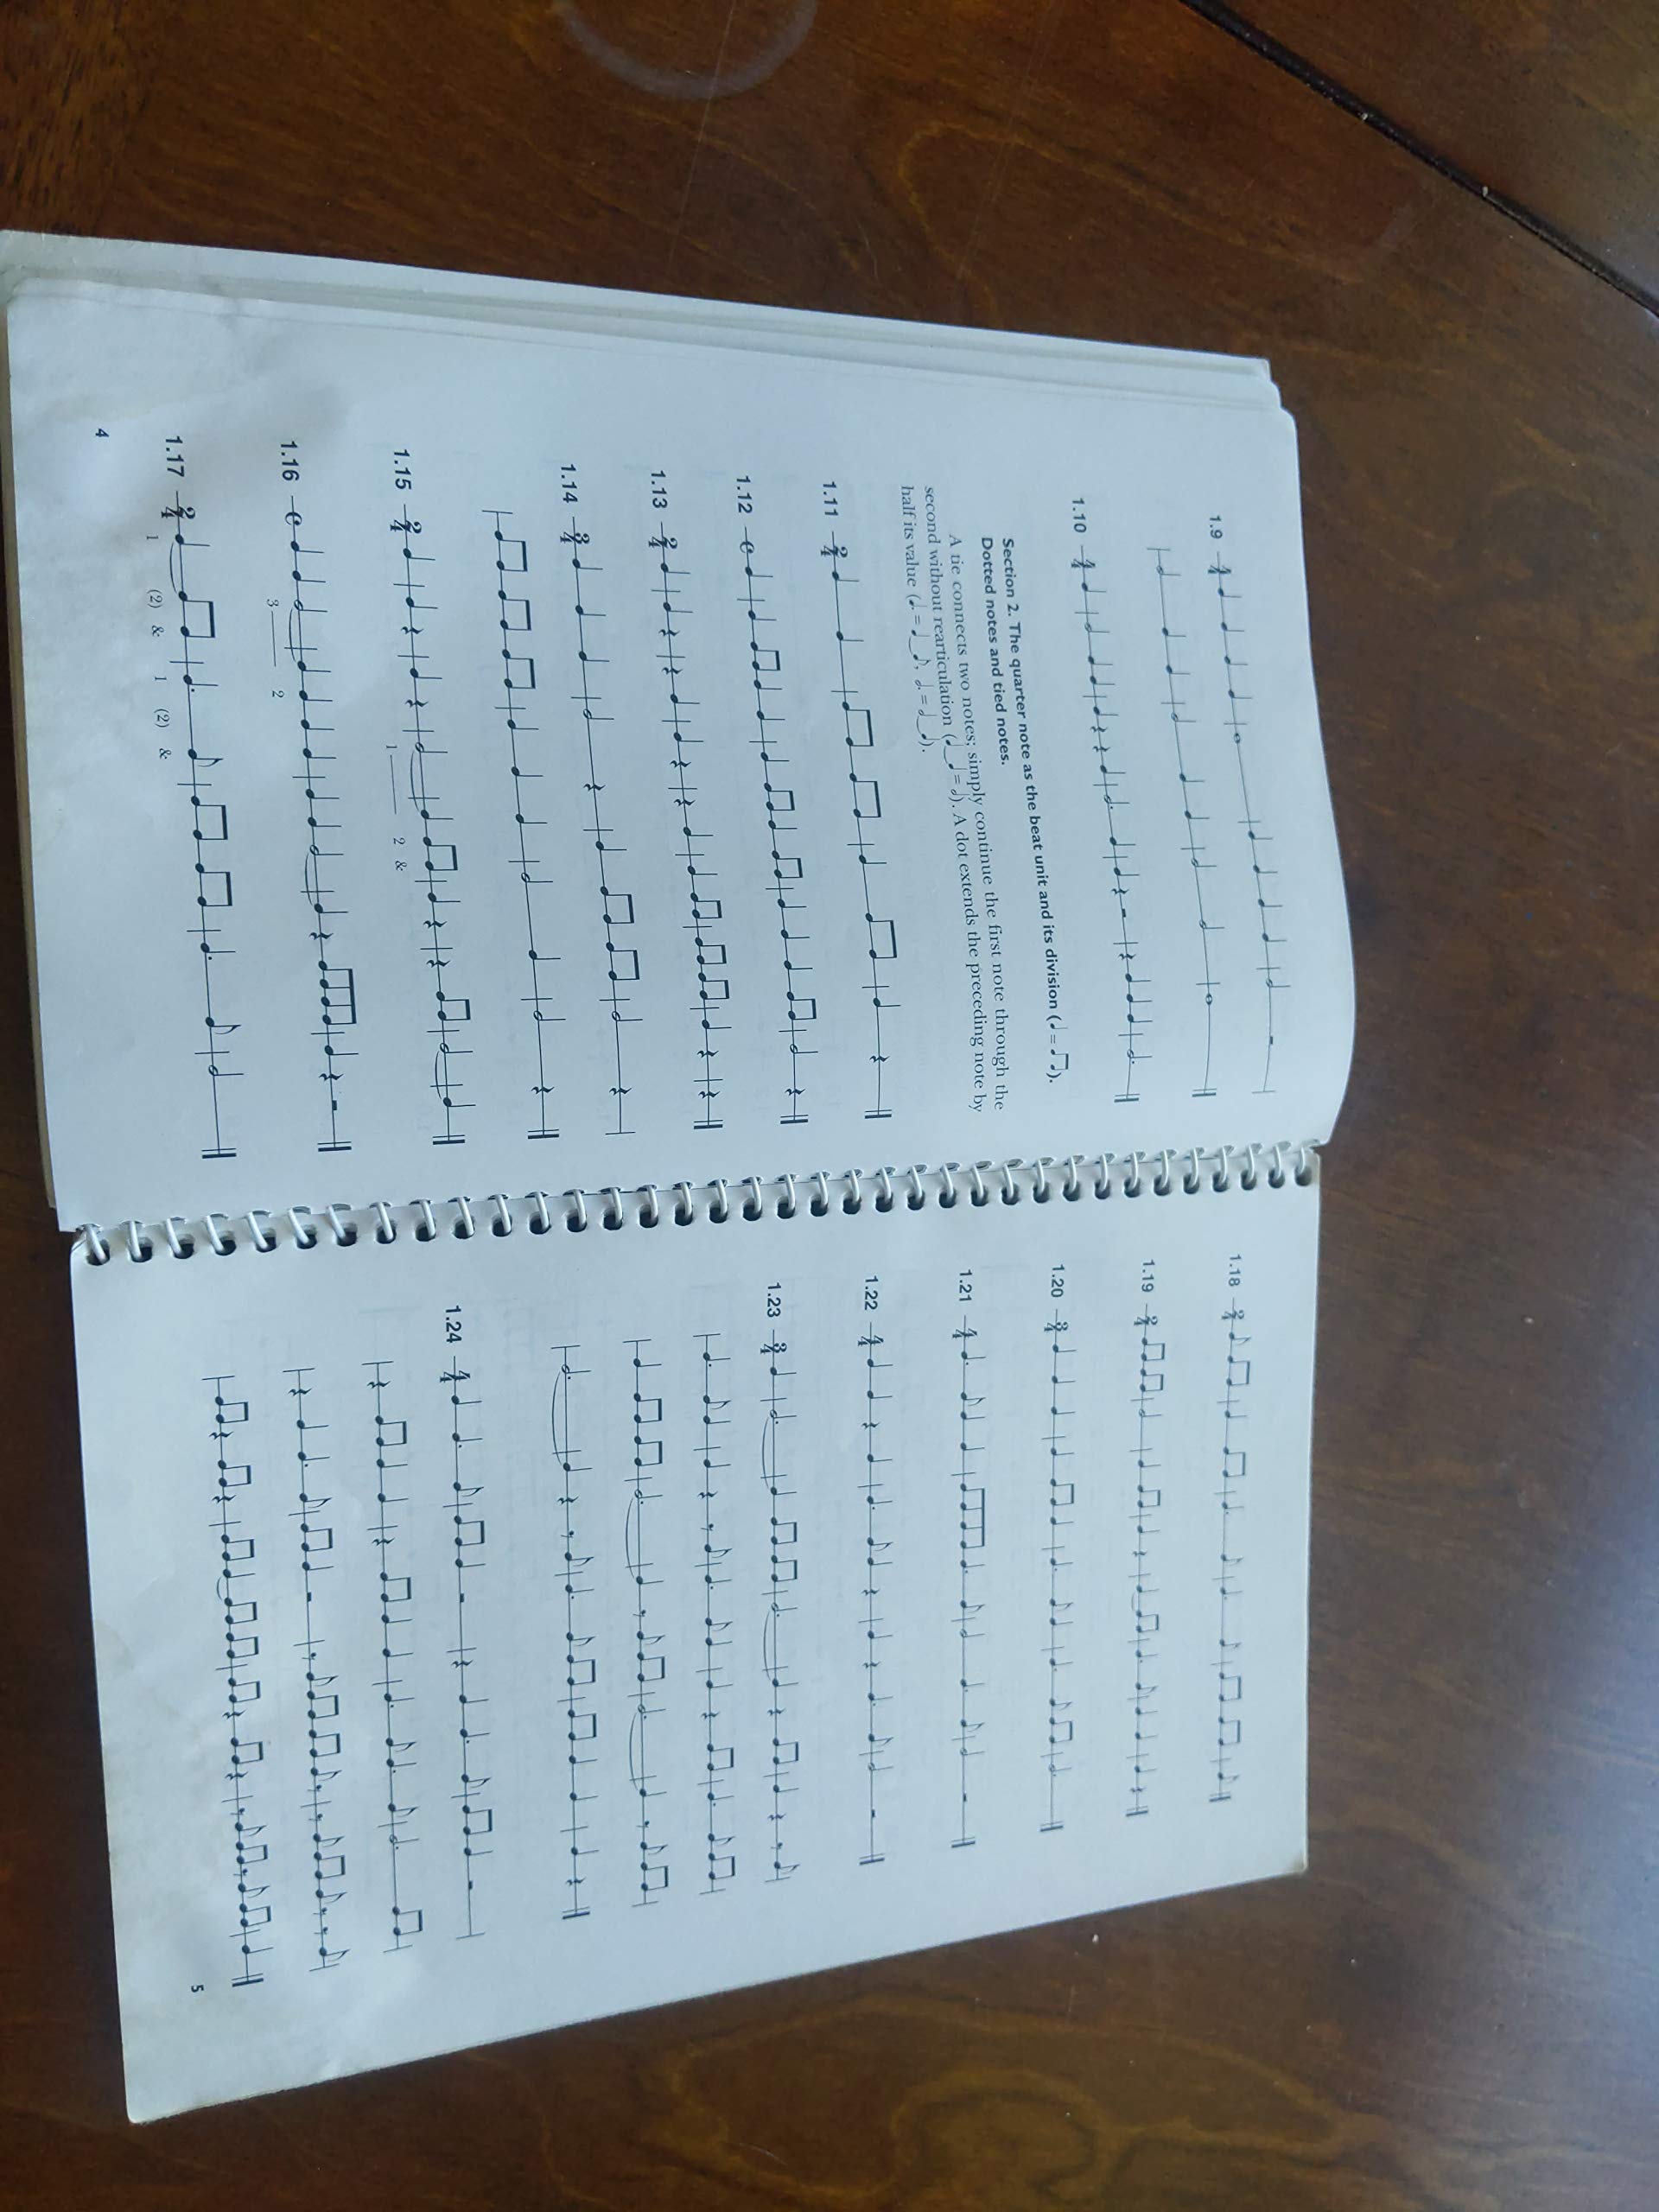 1.9 4/4
1.10 4/4
Section 2. The quarter note as the beat unit and its division (♩ = ♫).
Dotted notes and tied notes.
A tie connects two notes; simply continue the first note through the
second without rearticulation (♩‿♩ = 𝅗𝅥). A dot extends the preceding note by
half its value (♩. = ♩‿♪, 𝅗𝅥. = 𝅗𝅥‿♩).
1.11 2/4
1.12 c
1.13 2/4
1.14 3/4
1.15 2/4
1 2 &
1.16 c
3 2
1.17 2/4
1 (2) & 1 (2) &
4
1.18 2/4
1.19 2/4
1.20 3/4
1.21 4/4
1.22 4/4
1.23 3/4
1.24 4/4
5